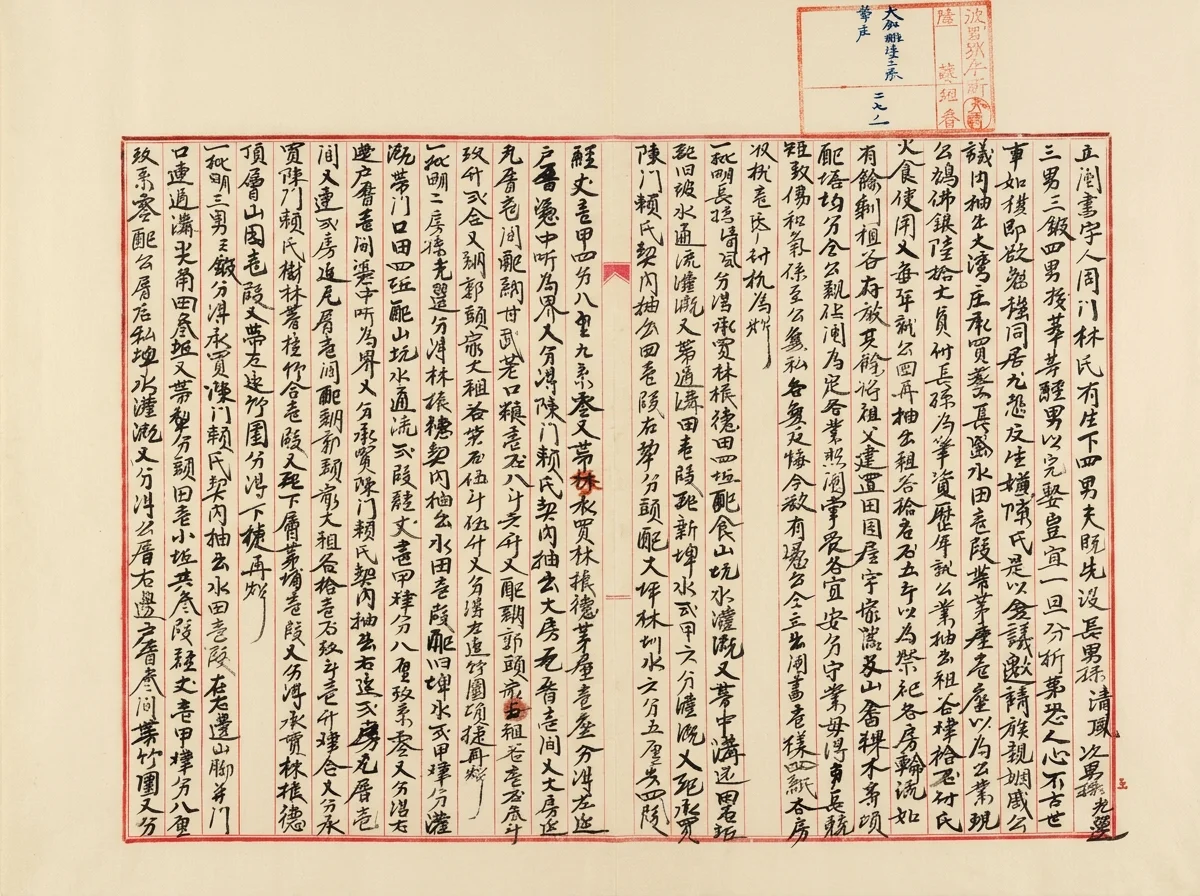 立鬮書字人周門林氏有生下四男夫既先設長男孫清風次男孫光選
三男三鍛四男振華等經男以完娶豈宜一旦分折第恐人心不古世
事如棋即欲勉強同居尤慾反生嫌隙氏是以爰議邀請族親姻戚公
議內抽出大灣庄承買蔡長水田壱段帶茅屋壱座以為公業現
公鳩佛銀陸拾大員付長孫為筆資歷年就公業抽出租谷肆拾石付氏
火食使用又每年就公田再抽出租谷拾石五斗以為祭祀各房輪流如
有餘剩租谷存放其餘將祖父建置田園屋宇家器及山畬稞木等項
配搭均分仝公親佔鬮為定各業照鬮掌管各宜安分守業毋得爭長競
短致傷和氣係至公無私各無反悔今欲有憑公仝立出鬮書壱樣四紙各房
收執壱紙付執為炤
一批明長孫清風分得承買林振德田四坵配食山坑水灌溉又帶中溝迆田石坵
配旧坡水通流灌溉又帶通溝田壱段配新埤水弍甲六分灌溉又配承買
陳門賴氏契內抽出田壱段右畔分頭配大坪林圳水六分五厘共四段
經丈壱甲四分八里九系零又帶承買林振德茅屋壱座分得左迆
戶厝憑中听為界又分得陳門賴氏契內抽出大房瓦厝壱間又大房迆
瓦厝壱間配納廿弍荖口糧壱石八斗六升又配納郭頭家大租谷壱石叁斗
玖升弍合又納郭頭家大租谷柒石伍斗伍升又分得左迆竹圍項捷再炤
一批明二房孫光選分得林振德契內抽出水田壱段配旧埤水弍甲肆分灌
溉帶門口田四坵配山坑水通流弍段經丈壹甲肆分八厘玖系零又分得右
迆戶厝壱間憑中听為界又分承買陳門賴氏契內抽出右迆弍房瓦厝壱
間又連弍房迆瓦厝壱間配納郭頭家大租谷拾壱石玖斗壱升肆仝又分承
買陳門賴氏樹林薯種份合壱段又配下層茅埔壱段又分得承買林振德
頂層山園壱段又帶左迆竹圍分得下捷再炤
一批明三男三鍛分得承買陳門賴氏契內抽出水田壱段在右邊山腳并門
口連過溝尖角田叁坵又帶犁分頭田壱小坵共叁段經丈壱甲肆分八厘
玖系零配公厝后私埤水灌溉又分得公厝右邊戶厝叁間帶竹圍又分